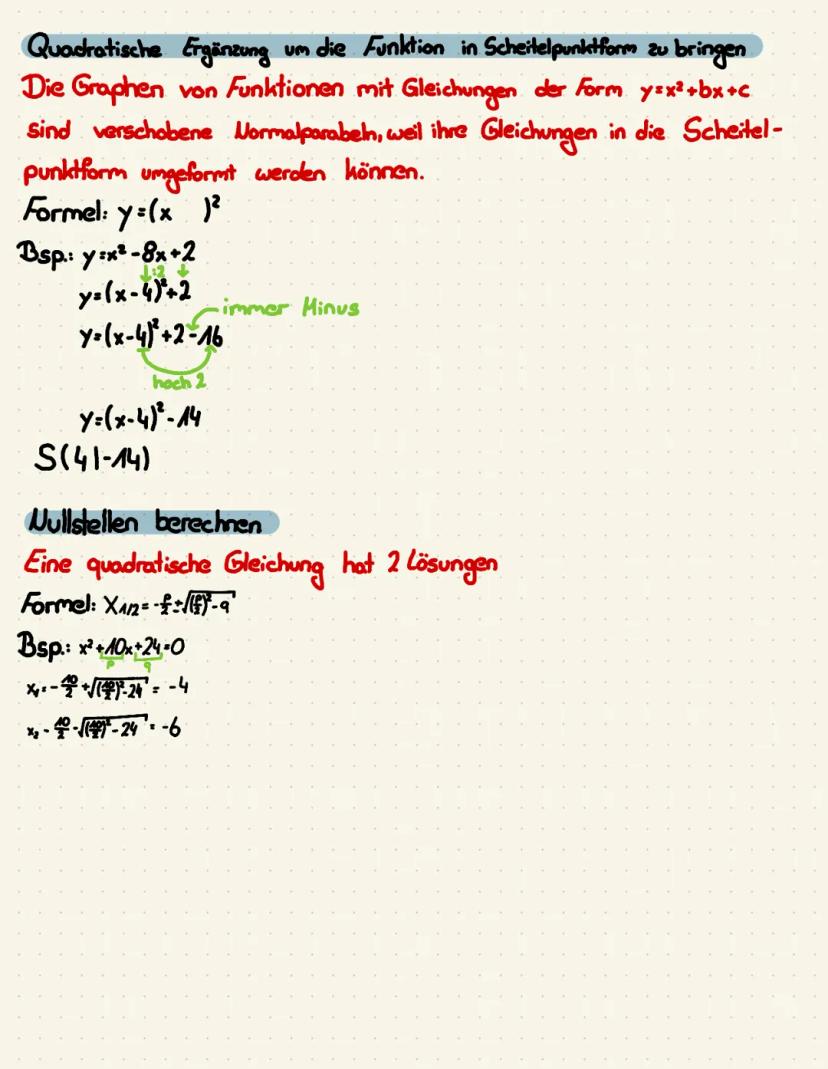 Quadratische Ergänzung um die Funktion in Scheitelpunktform zu bringen
Die Graphen von Funktionen mit Gleichungen der Form y=x²+bx+c
sind verschobene Normalparabeln, weil ihre Gleichungen in die Scheitel-
punktform umgeformt werden können.
Formel: y=(x )²
Bsp.: y=x²-8x+2
↓:2 ↓
y=(x-4)²+2
immer Minus
y=(x-4)²+2-16
hoch 2
y=(x-4)²-14
S(4|-14)
Nullstellen berechnen
Eine quadratische Gleichung hat 2 Lösungen
Formel: X₁/₂=-p/2±√((p/2)²-q)
Bsp.: x²+10x+24=0
p q
x₁=-10/2+√((10/2)²-24)=-4
x₂-10/2-√((10/2)²-24)=-6